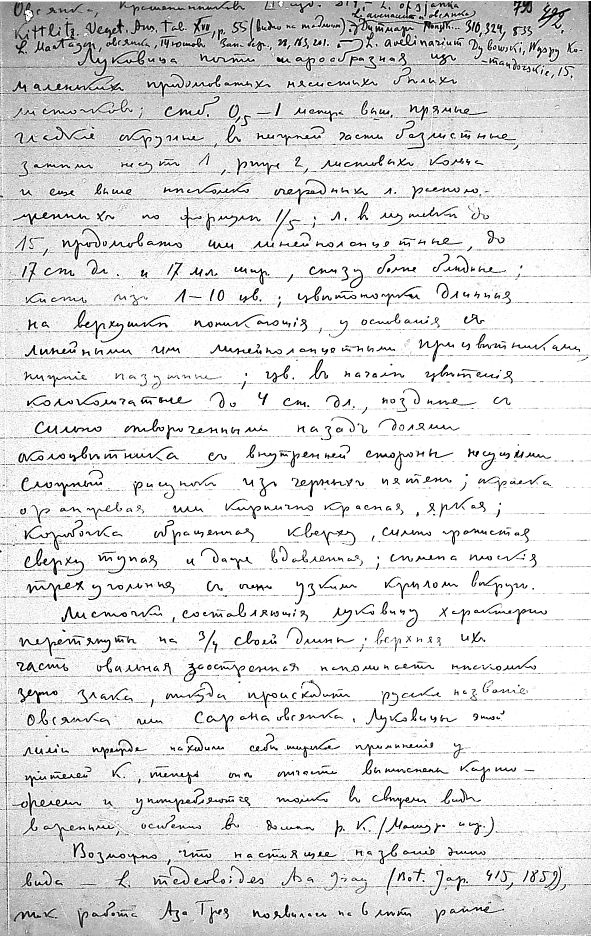 Овсянка, Крашенинников L. ofsjanka
Kittlitz. Veget. Ans. Tab. XVII, p. 55 (видно на таблице). Дитмар 310, 324, 833
овсянка, L. avelinarium Dybowski, Wyspy Ko-
mandorskie, 15.
Луковица почти шарообразная изъ
маленькихъ продолговатыхъ мясистыхъ бѣлыхъ
листочковъ; стб. 0,5 – 1 метра выш. прямые
гладкіе округлые, въ нижней части безлистные,
затѣмъ несутъ 1, рѣже 2, листовыхъ кольца
и еще выше нѣсколько очередныхъ л. располо-
женныхъ по формулѣ 1/5; л. въ мутовкѣ до
15, продолговато или линейноланцетные, до
17 стм дл. и 17 мм. шир., снизу болѣе блѣдные;
кисть изъ 1–10 цв.; цвѣтоножки длинныя
на верхушкѣ поникающія, у основанія съ
линейными или линейноланцетными прицвѣтниками,
нижніе пазушные; цв. въ началѣ цвѣтенія
колокольчатые до 4 стм. дл., позднѣе съ
сильно отвороченными назадъ долями
околоцвѣтника съ внутренней стороны несущими
сложный рисунокъ изъ черныхъ пятенъ; окраска
оранжевая или кирпично красная, яркая;
коробочка обращенная кверху, сильно гранистая
сверху тупая и даже вдавленная; сѣмена плоскія
трехугольныя съ очень узкимъ крыломъ вокругъ.
Листочки, составляющія луковицу характерно
перетянуты на 3/4 своей длины; верхняя ихъ
часть овальная заостренная напоминаетъ нѣсколько
зерно злака, откуда происходитъ русское названіе
Овсянка или Сарана овсянка. Луковицы этой
лиліи прежде находили себѣ широкое примѣненіе у
жителей К., теперь онѣ отчасти вытѣснены карто-
фелемъ и употребляются только въ свѣжемъ видѣ
вареными, особенно въ долинѣ р. К.
Возможно, что настоящее названіе этого
вида – L. medeoloides Asa Gray (Bot. Jap. 415, 1859),
такъ работа Аза Грея появилась на 6 лѣтъ ранѣе